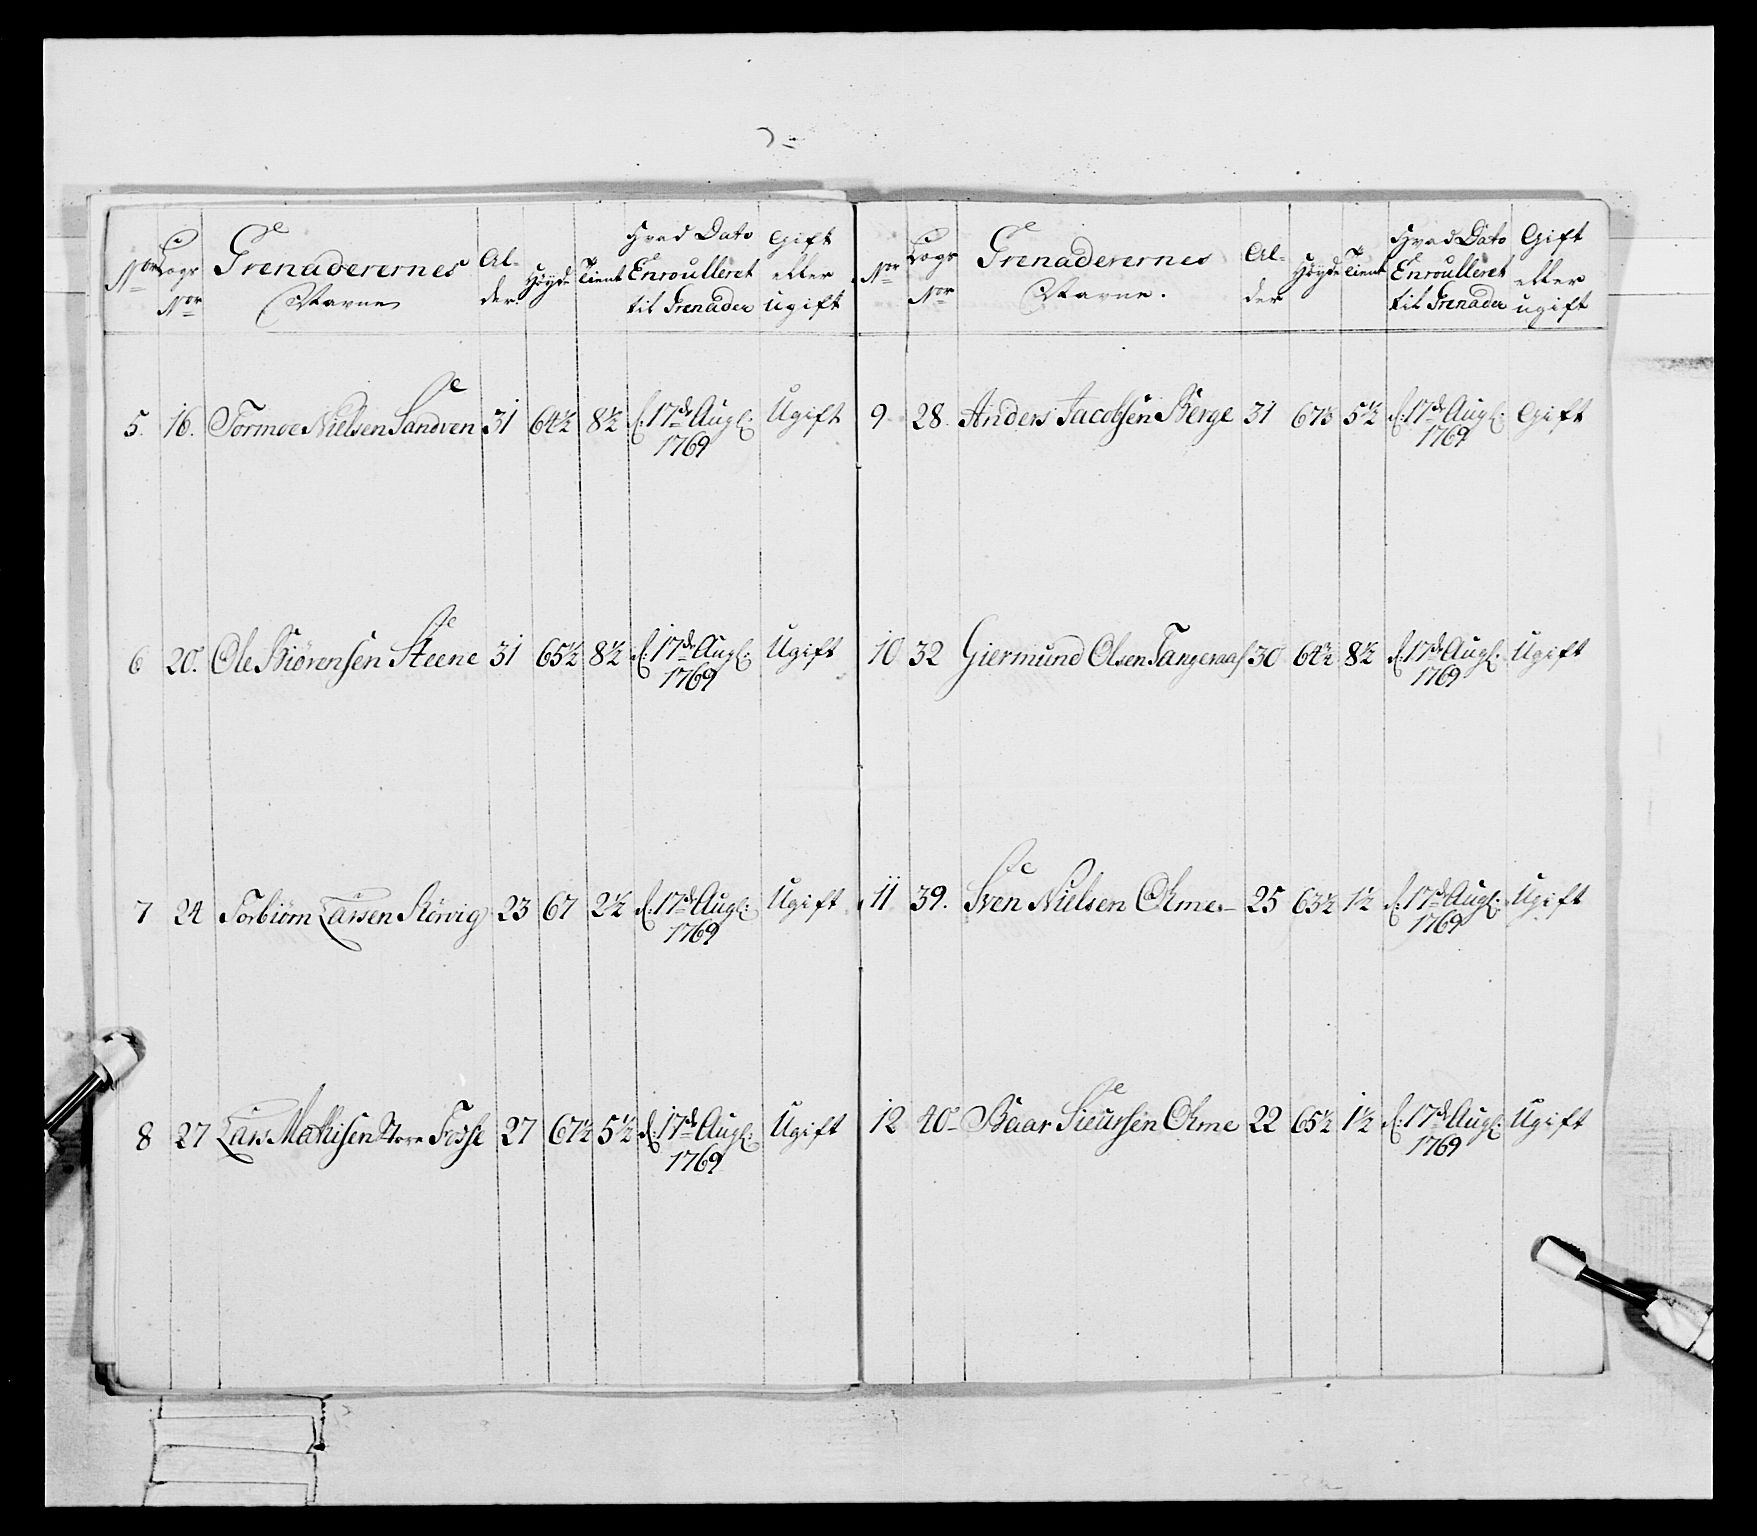 Nor Logs Nor Grenaderernes Navne Al-der. Høyde Tient Hvad Dato Enroulleret til Grenader Gift eller ugift
5. 16. Tormoe Nielsen Sandven 31 64½ 8½ d: 17de Augl: Ugift
1769
6 20. Ole Biørensen Steene 31 65½ 8½ d: 17de Augl: Ugift
1769
7 24 Torbiørn Larsen Rørvig 23 67 2½ d: 17de Augl: Ugift
1769
8 27 Lars Mathisen Store Fosse 27 67½ 5½ d: 17de Augl: Ugift
1769
Nor Logs Nor Grenaderernes Navne. Al-der Høyde Tient Hvad Dato Enroulleret til Grenader Gift eller ugift
9 28. Anders Jacobsen Berge 31 67½ 5½ d: 17de Augl: Gift
1769
10 32 Giermund Olsen Tangeraas 30 64½ 8½ d: 17de Augl: Ugift
1769
11 39. Sven Nielsen Okme 25 63½ 1½ d: 17de Augl: Ugift
1769
12 40 Baar Siursen Okme 22 65½ 1½ d: 17de Augl: Ugift
1769